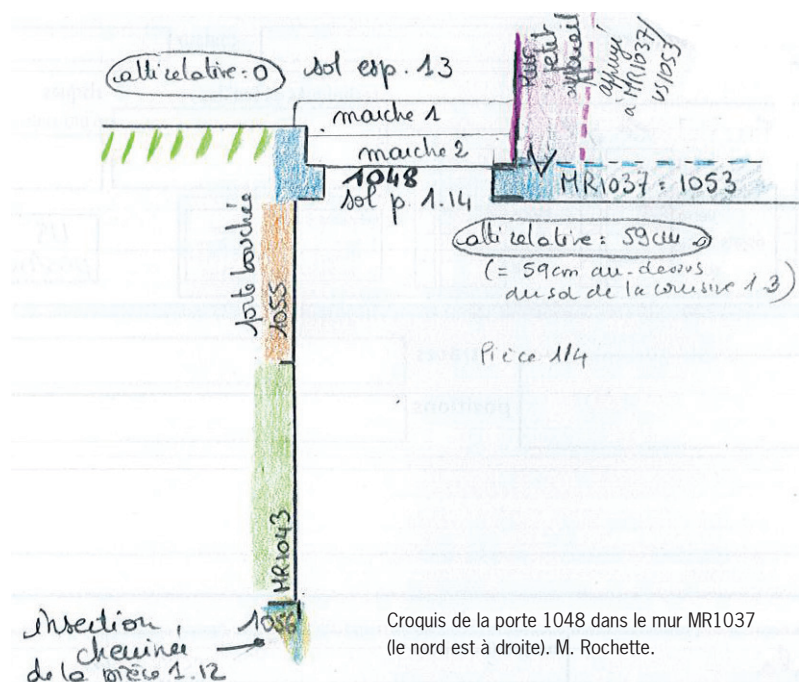 alti relative : 0
sol esp. 13
marche 1
marche 2
1048
sol p. 1.14
petit
appuyé
à MR1037/
US1053
MR1037 = 1053
alti relative : 59cm
(= 59cm au-dessus
du sol de la coursive 1.3)
porte bouchée
1055
Pièce 1.14
MR1043
insertion
cheminée
de la pièce 1.12
Croquis de la porte 1048 dans le mur MR1037
(le nord est à droite). M. Rochette.